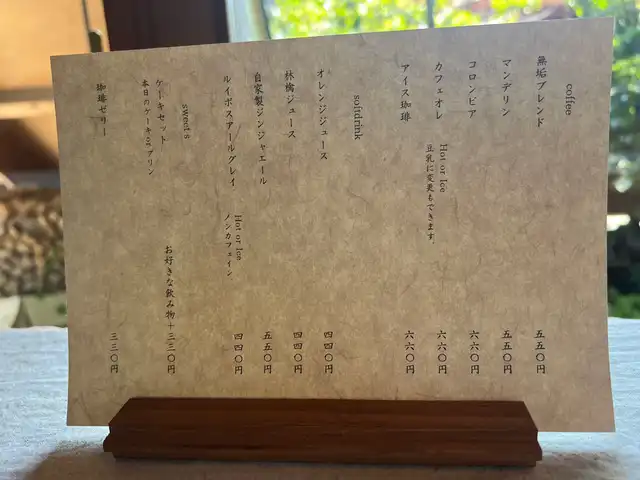 coffee
無垢ブレンド 五五〇円
マンデリン 五五〇円
コロンビア 六六〇円
カフェオレ Hot or Ice 六六〇円
豆乳に変更もできます。
アイス珈琲 六六〇円
softdrink
オレンジジュース 四四〇円
林檎ジュース 四四〇円
自家製ジンジャエール 五五〇円
ルイボスアールグレイ Hot or Ice 四四〇円
ノンカフェイン
sweets
ケーキセット お好きな飲み物+三三〇円
本日のケーキorプリン
珈琲ゼリー 三三〇円